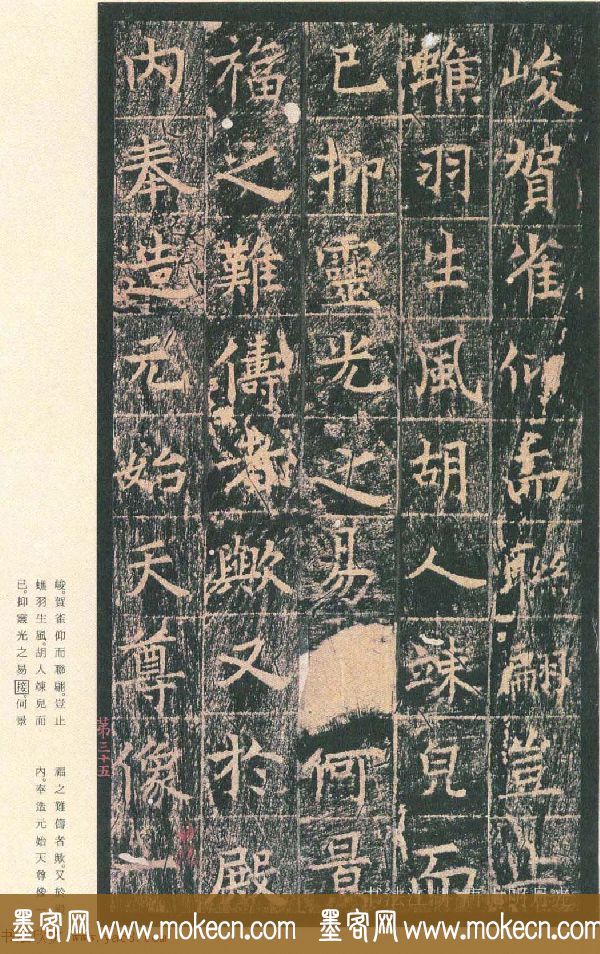 峻賀雀仰而聯翩豈止
蟭羽生風胡人竦皃而
已抑靈光之易何景
福之難儔者歟又於殿
内奉造元始天尊像一
峻。賀雀仰而聯翩。豈止
蟭羽生風。胡人竦皃而
已。抑靈光之易接。何景
福之難儔者歟。又於
内。奉造元始天尊像
第三十五
墨客网 www.mokecn.com 墨客网 www.mokecn.com